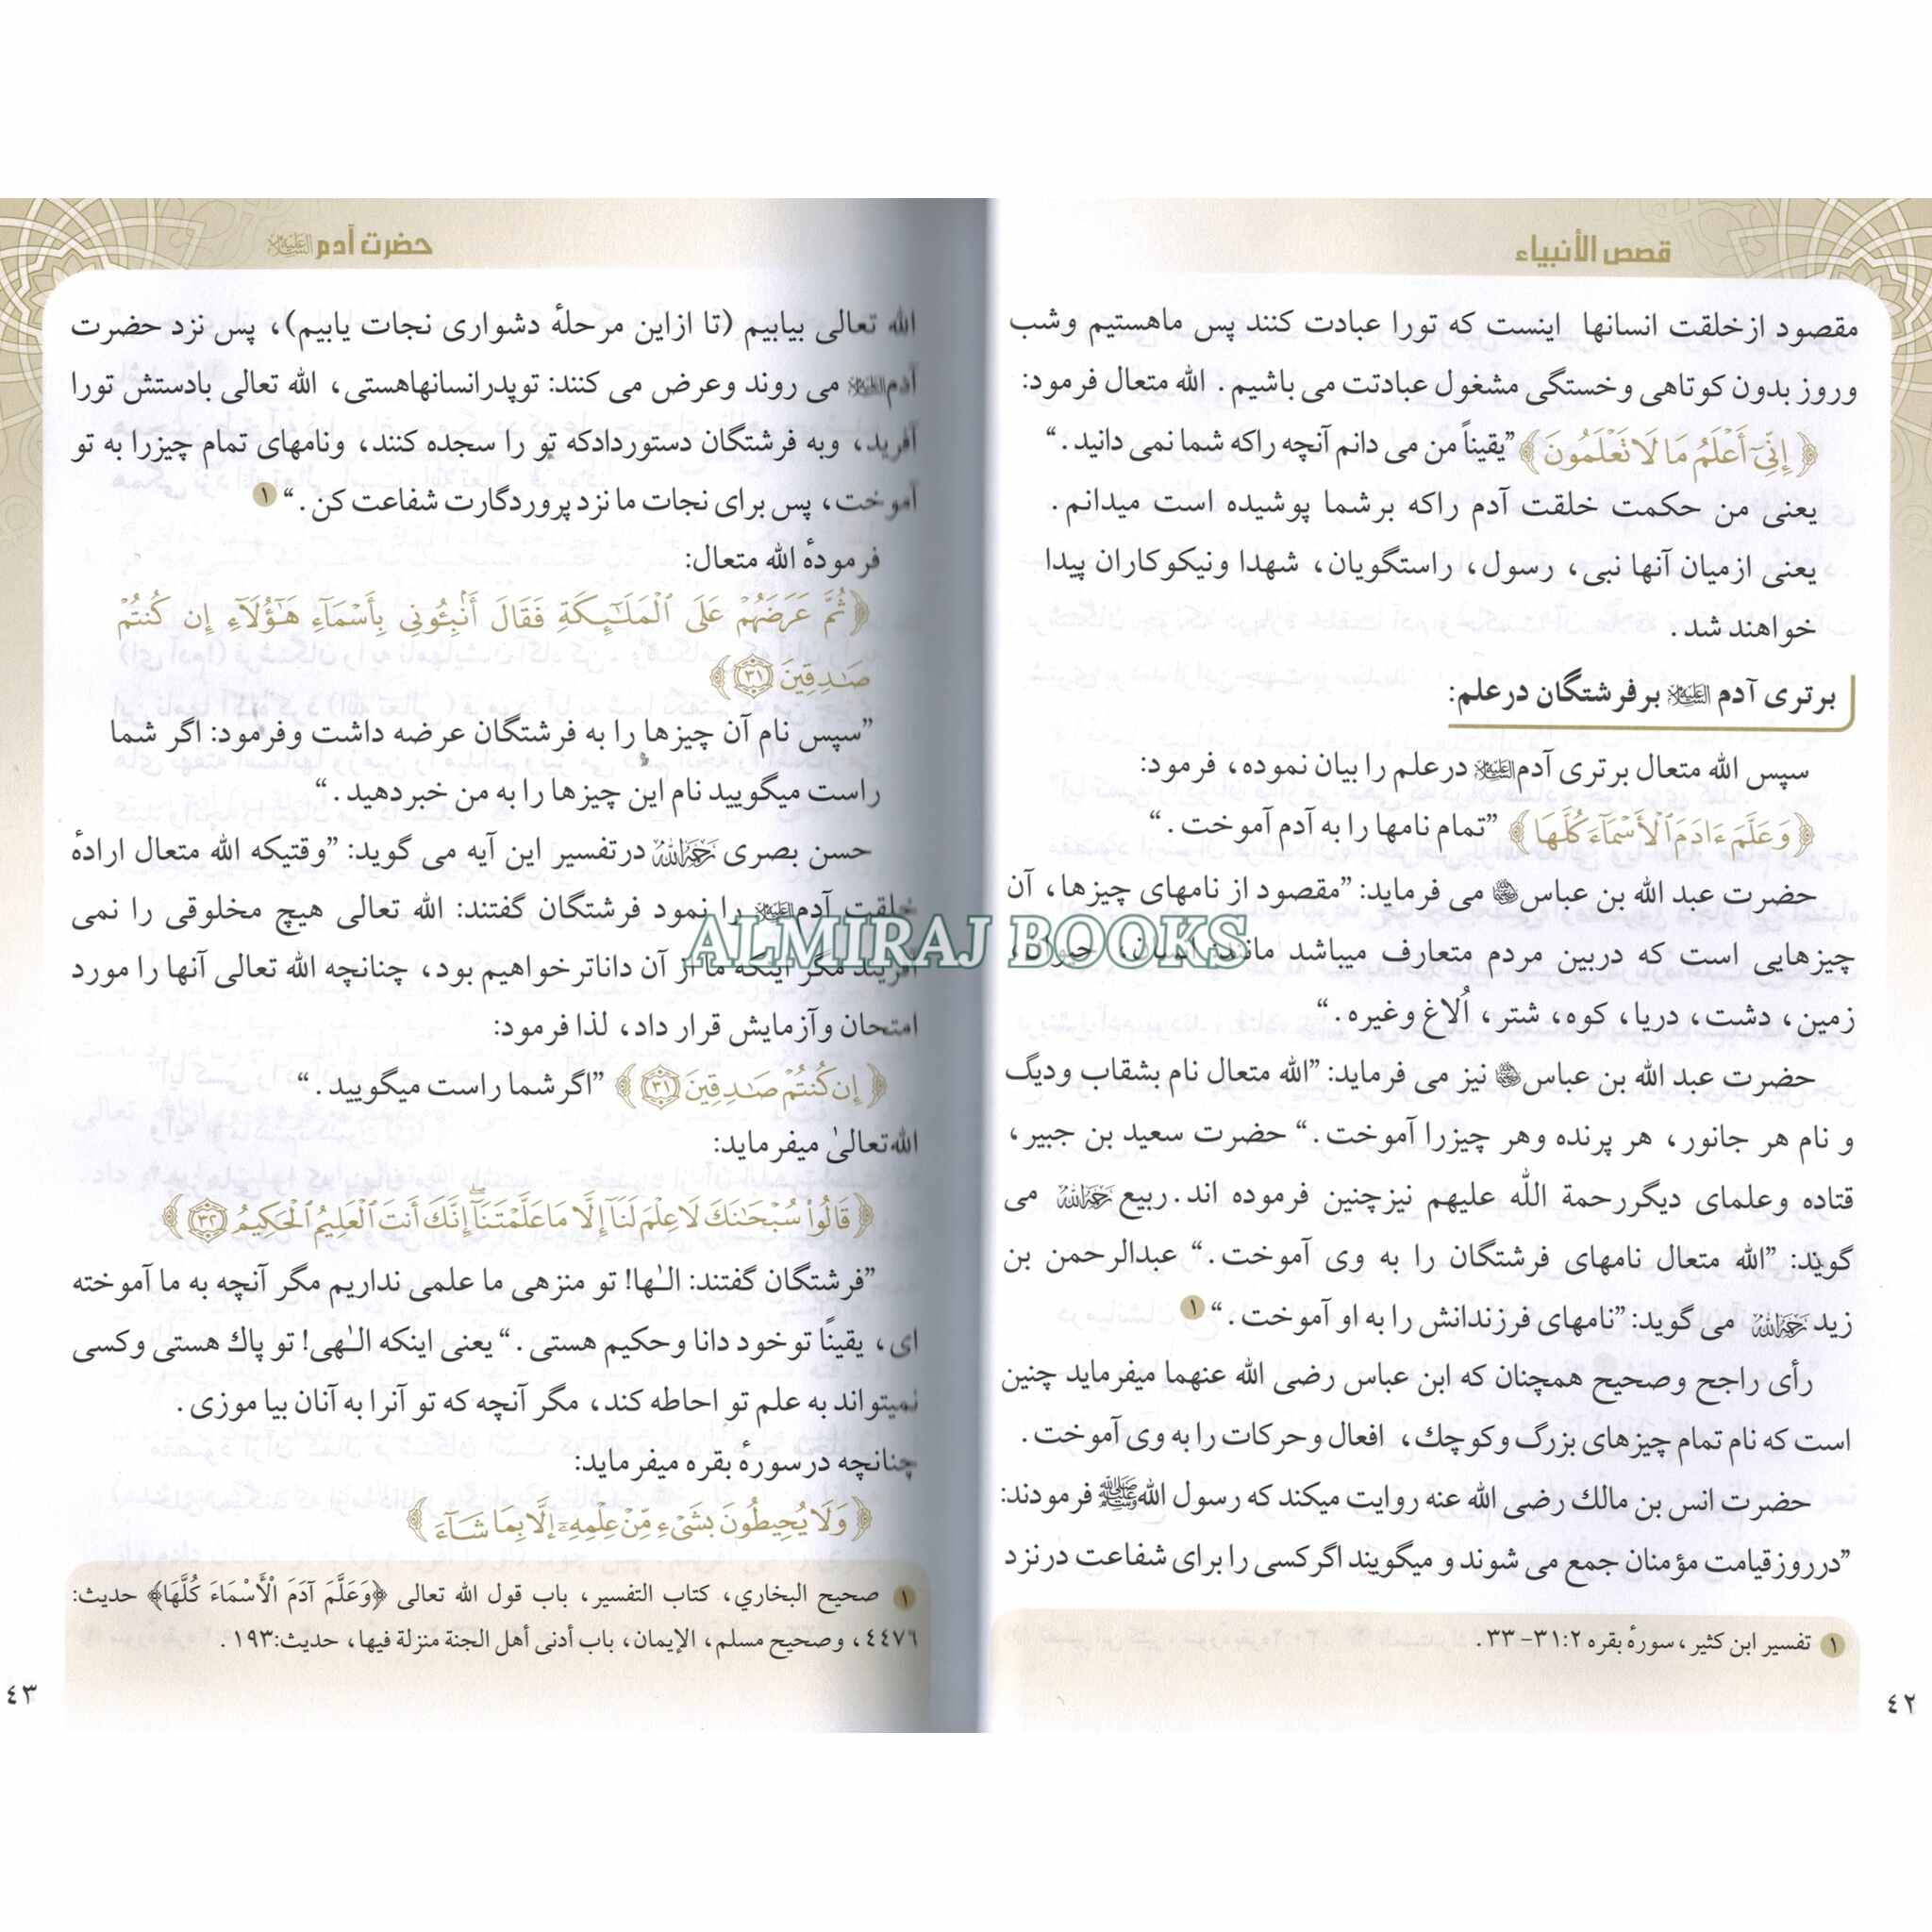 قصص الأنبياء
مقصود ازخلقت انسانها اینست که تورا عبادت کنند پس ماهستیم وشب
وروز بدون کوتاهی وخستگی مشغول عبادتت می باشیم. الله متعال فرمود:
﴿إِنِّىٓ أَعْلَمُ مَا لَا تَعْلَمُونَ﴾ ”یقیناً من می دانم آنچه راکه شما نمی دانید.“
یعنی من حکمت خلقت آدم راکه برشما پوشیده است میدانم.
یعنی ازمیان آنها نبی، رسول، راستگویان، شهدا ونیکوکاران پیدا
خواهند شد.
برتری آدم علیه السلام برفرشتگان درعلم:
سپس الله متعال برتری آدم علیه السلام درعلم را بیان نموده، فرمود:
﴿وَعَلَّمَ ءَادَمَ ٱلْأَسْمَآءَ كُلَّهَا﴾ ”تمام نامها را به آدم آموخت.“
حضرت عبد الله بن عباس رضی الله عنه می فرماید: ”مقصود از نامهای چیزها، آن
چیزهایی است که دربین مردم متعارف میباشد مانند: انسان، حیوان،
زمین، دشت، دریا، کوه، شتر، اُلاغ وغیره.“
حضرت عبد الله بن عباس رضی الله عنه نیز می فرماید: ”الله متعال نام بشقاب ودیگ
و نام هر جانور، هر پرنده وهر چیزرا آموخت.“ حضرت سعید بن جبیر،
قتاده وعلمای دیگررحمة الله علیهم نیزچنین فرموده اند.ربیع رحمه الله می
گوید: ”الله متعال نامهای فرشتگان را به وی آموخت.“ عبدالرحمن بن
زید رحمه الله می گوید: ”نامهای فرزندانش را به او آموخت.“ ١
رأی راجح وصحیح همچنان که ابن عباس رضی الله عنهما میفرماید چنین
است که نام تمام چیزهای بزرگ وکوچك، افعال وحرکات را به وی آموخت.
حضرت انس بن مالك رضی الله عنه روایت میکند که رسول الله ﷺ فرمودند:
”درروزقیامت مؤمنان جمع می شوند و میگویند اگرکسی را برای شفاعت درنزد
١ تفسیر ابن کثیر، سورهٔ بقره ٣١:٢-٣٣.
٤٢
حضرت آدم علیه السلام
الله تعالی بیابیم (تا ازاین مرحلهٔ دشواری نجات یابیم)، پس نزد حضرت
آدم علیه السلام می روند وعرض می کنند: توپدرانسانهاهستی، الله تعالی بادستش تورا
آفرید، وبه فرشتگان دستوردادکه تو را سجده کنند، ونامهای تمام چیزرا به تو
آموخت، پس برای نجات ما نزد پروردگارت شفاعت کن.“ ١
فرمودهٔ الله متعال:
﴿ثُمَّ عَرَضَهُمْ عَلَى ٱلْمَلَـٰٓئِكَةِ فَقَالَ أَنۢبِـُٔونِى بِأَسْمَآءِ هَـٰٓؤُلَآءِ إِن كُنتُمْ
صَـٰدِقِينَ ٣١﴾
”سپس نام آن چیزها را به فرشتگان عرضه داشت وفرمود: اگر شما
راست میگویید نام این چیزها را به من خبردهید.“
حسن بصری رحمه الله درتفسیر این آیه می گوید: ”وقتیکه الله متعال ارادهٔ
خلقت آدم علیه السلام را نمود فرشتگان گفتند: الله تعالی هیچ مخلوقی را نمی
آفریند مگر اینکه ما از آن داناترخواهیم بود، چنانچه الله تعالی آنها را مورد
امتحان وآزمایش قرار داد، لذا فرمود:
﴿إِن كُنتُمْ صَـٰدِقِينَ ٣١﴾ ”اگرشما راست میگویید.“
الله تعالیٰ میفرماید:
﴿قَالُوا۟ سُبْحَـٰنَكَ لَا عِلْمَ لَنَآ إِلَّا مَا عَلَّمْتَنَآ ۖ إِنَّكَ أَنتَ ٱلْعَلِيمُ ٱلْحَكِيمُ ٣٢﴾
”فرشتگان گفتند: الـٰها! تو منزهی ما علمی نداریم مگر آنچه به ما آموخته
ای، یقینًا توخود دانا وحکیم هستی.“ یعنی اینکه الـٰهی! تو پاك هستی وکسی
نمیتواند به علم تو احاطه کند، مگر آنچه که تو آنرا به آنان بیا موزی.
چنانچه درسورهٔ بقره میفرماید:
﴿وَلَا يُحِيطُونَ بِشَىْءٍ مِّنْ عِلْمِهِۦٓ إِلَّا بِمَا شَآءَ﴾
١ صحیح البخاري، کتاب التفسیر، باب قول الله تعالی ﴿وَعَلَّمَ آدَمَ الْأَسْمَاءَ كُلَّهَا﴾ حدیث:
٤٤٧٦، وصحیح مسلم، الإیمان، باب أدنی أهل الجنة منزلة فیها، حدیث:١٩٣.
٤٣
ALMIRAJ BOOKS